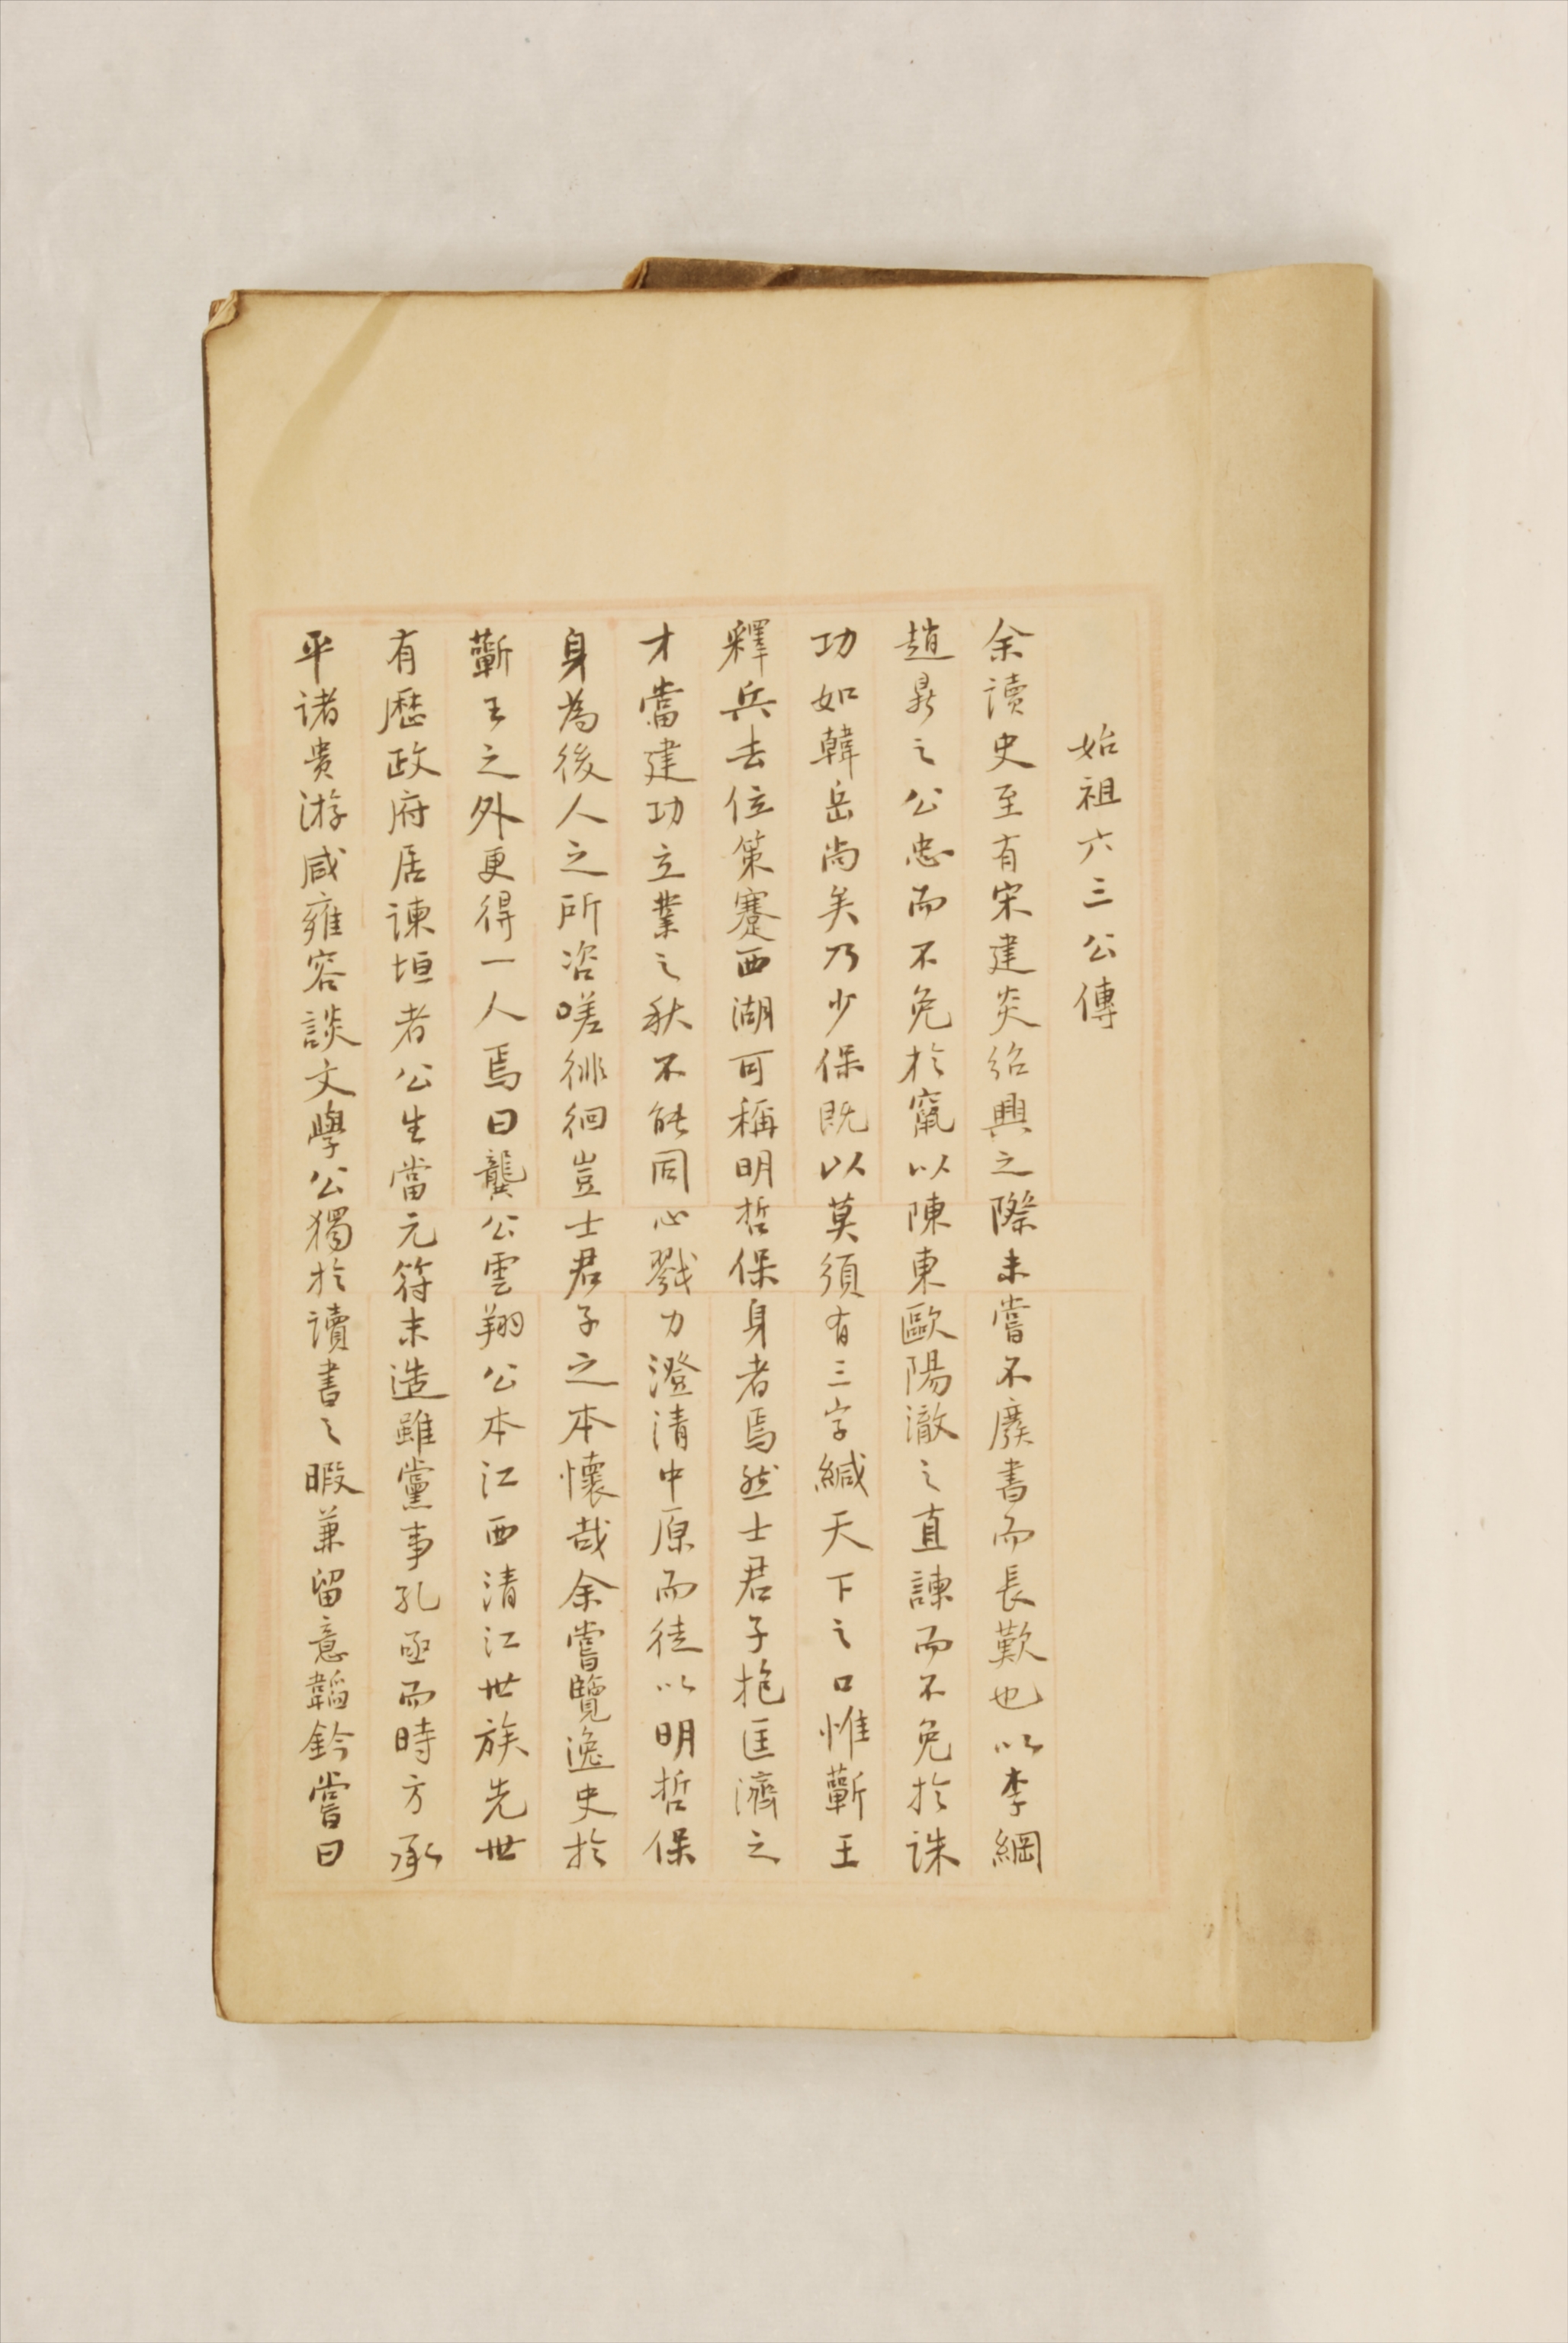 始祖六三公傳
余讀史至有宋建炎紹興之際未嘗不廢書而長歎也以李綱
趙鼎之公忠而不免於竄以陳東歐陽澈之直諫而不免於誅
功如韓岳尚矣乃少保既以莫須有三字緘天下之口惟蘄王
釋兵去位策蹇西湖可稱明哲保身者焉然士君子抱匡濟之
才當建功立業之秋不能同心戮力澄清中原而徒以明哲保
身為後人之所咨嗟徘徊豈士君子之本懷哉余嘗覽逸史於
蘄王之外更得一人焉曰龔公雲翔公本江西清江世族先世
有歷政府居諫垣者公生當元符末造雖黨事孔亟而時方承
平諸貴游咸雍容談文學公獨於讀書之暇兼留意韜鈐嘗曰